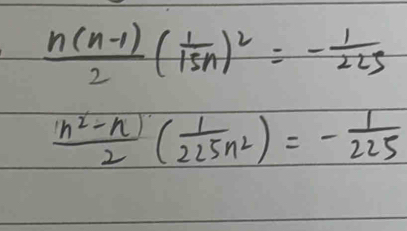 n(n-1)/2 (1/15n)² = -1/225
(n²-n)/2 (1/225n²) = -1/225